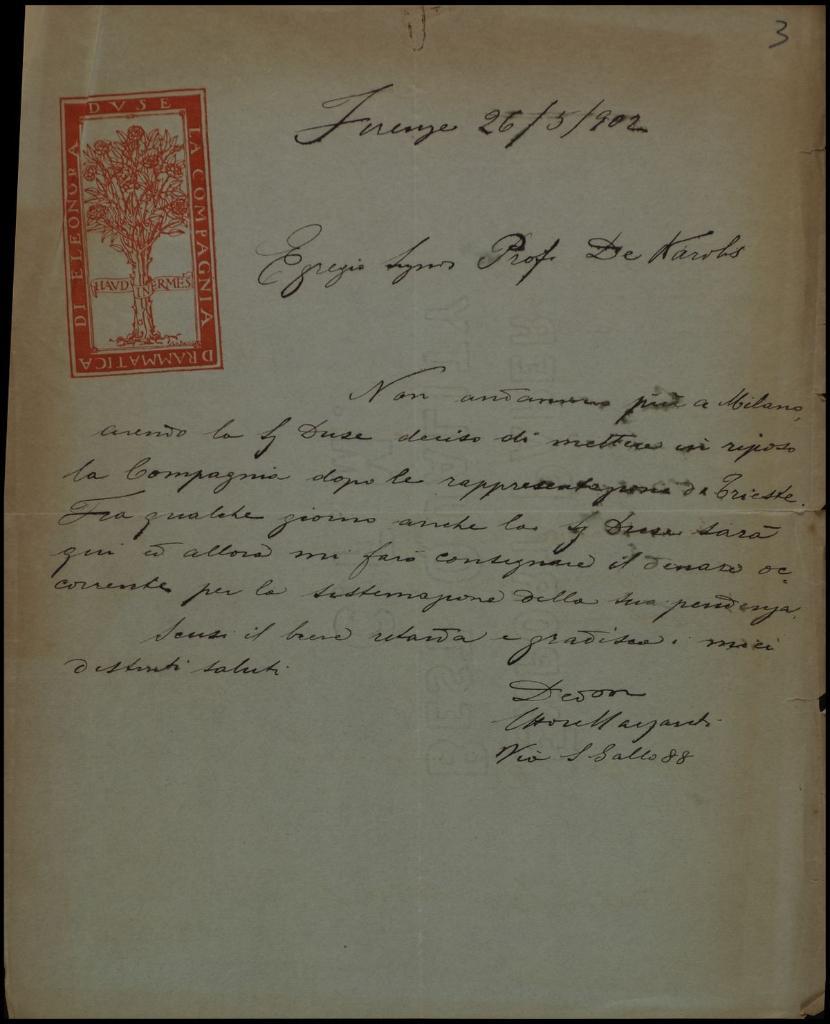 3
LA COMPAGNIA
DRAMMATICA
DI ELEONORA
DVSE
HAUD INERMES
Firenze 26/5/902
Egregio Signor Prof. De Karolis
Non andiamo più a Milano,
avendo la Sg Duse deciso di mettere in riposo
la Compagnia dopo le rappresentazioni di Trieste.
Fra qualche giorno anche la Sg Duse sarà
qui ed allora mi farò consegnare il denaro oc-
corrente per la sistemazione della sua pendenza.
Scusi il breve ritardo e gradisca i miei
distinti saluti
Devon
Via S Gallo 88